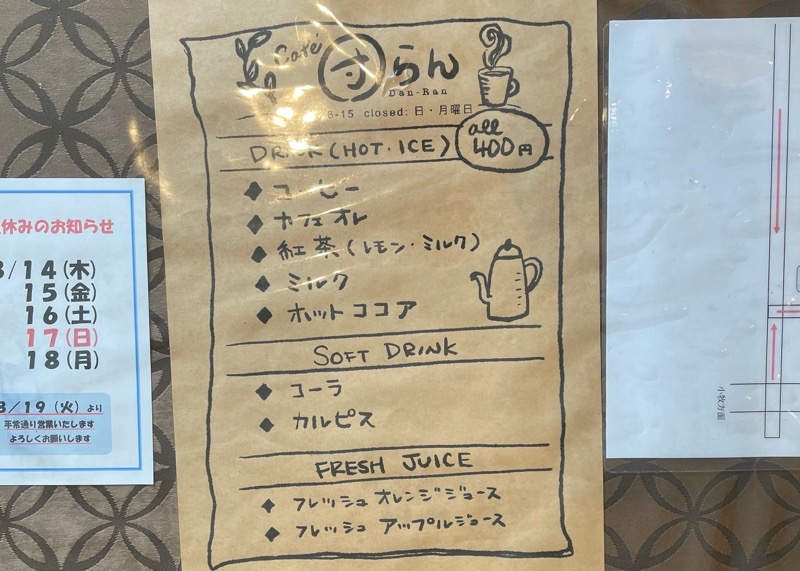 Café
団らん
Dan-Ran
8-15 closed: 日・月曜日
DRINK (HOT・ICE)
all
400円
◆ コーヒー
◆ カフェオレ
◆ 紅茶 (レモン・ミルク)
◆ ミルク
◆ ホットココア
SOFT DRINK
◆ コーラ
◆ カルピス
FRESH JUICE
◆ フレッシュオレンジジュース
◆ フレッシュアップルジュース
休みのお知らせ
8/14(木)
15(金)
16(土)
17(日)
18(月)
8/19(火)より
平常通り営業いたします
よろしくお願いします
小牧方面